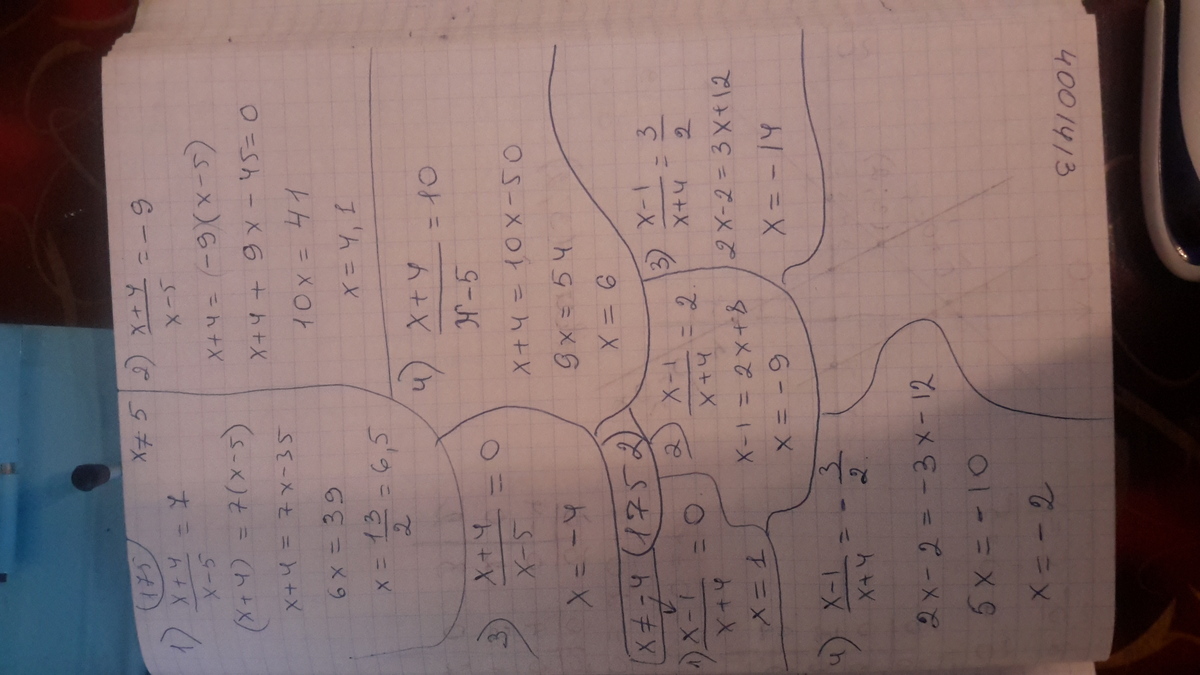 (175) x≠5
1) (x+4)/(x-5) = 7
(x+4) = 7(x-5)
x+4 = 7x-35
6x = 39
x = 13/2 = 6,5
2) (x+4)/(x-5) = -9
x+4 = (-9)(x-5)
x+4 + 9x - 45 = 0
10x = 41
x = 4,1
3) (x+4)/(x-5) = 0
x = -4
4) (x+4)/(x-5) = 10
x+4 = 10x-50
9x = 54
x = 6
x≠-4 (1752)
1) (x-1)/(x+4) = 0
x = 1
2) (x-1)/(x+4) = 2
x-1 = 2x+8
x = -9
3) (x-1)/(x+4) = 3/2
2x-2 = 3x+12
x = -14
4) (x-1)/(x+4) = -3/2
2x-2 = -3x-12
5x = -10
x = -2
4001413